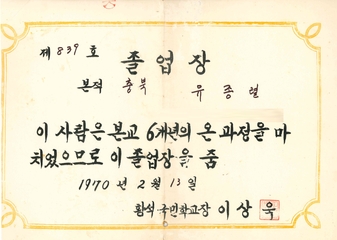 제 839 호
졸업장
본적 충북 유종렬
이 사람은 본교 6개년의 온 과정을 마
치었으므로 이 졸업장을 줌
1970 년 2 월 13 일
황석 국민학교장 이상욱